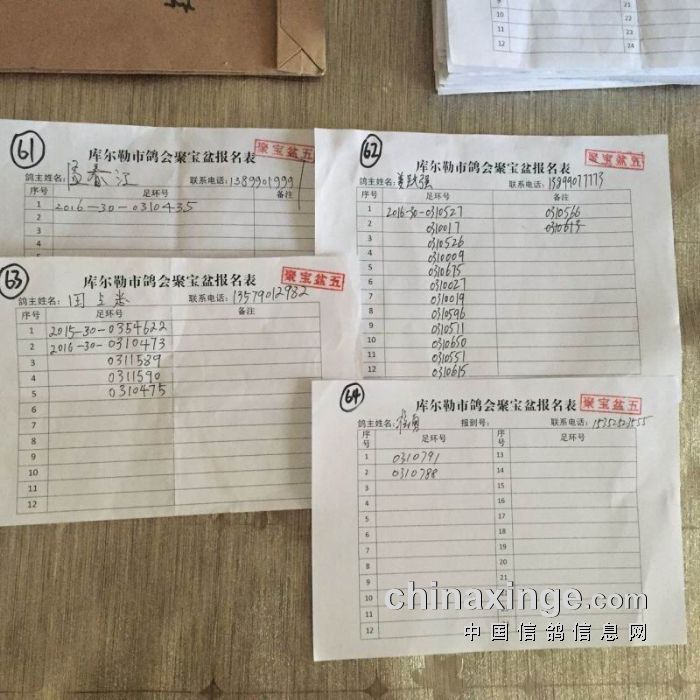 12
24
61
库尔勒市鸽会聚宝盆报名表
聚宝盆五
鸽主姓名: 孟春江 联系电话: 1389901999
序号 足环号 备注
1 2016-30-0310435
2
3
4
62
库尔勒市鸽会聚宝盆报名表
聚宝盆五
鸽主姓名: 姜跃强 联系电话: 13899077773
序号 足环号 备注
1 2016-30-0310527 0310566
2 0310017 0310613
3 0310526
4 0310009
5 0310675
6 0310027
7 0310019
8 0310596
9 0310511
10 0310650
11 0310551
12 0310615
63
库尔勒市鸽会聚宝盆报名表
聚宝盆五
鸽主姓名: 联系电话: 13579012982
序号 足环号 备注
1 2015-30-0354622
2 2016-30-0310473
3 0311589
4 0311590
5 0310475
6
7
8
9
10
11
12
64
库尔勒市鸽会聚宝盆报名表
聚宝盆五
鸽主姓名: 报到号: 联系电话:
序号 足环号 序号 足环号
1 0310791 13
2 0310788 14
3 15
4 16
5 17
6 18
7 19
8 20
9 21
10
11
12
chinaxinge.com
中国信鸽信息网